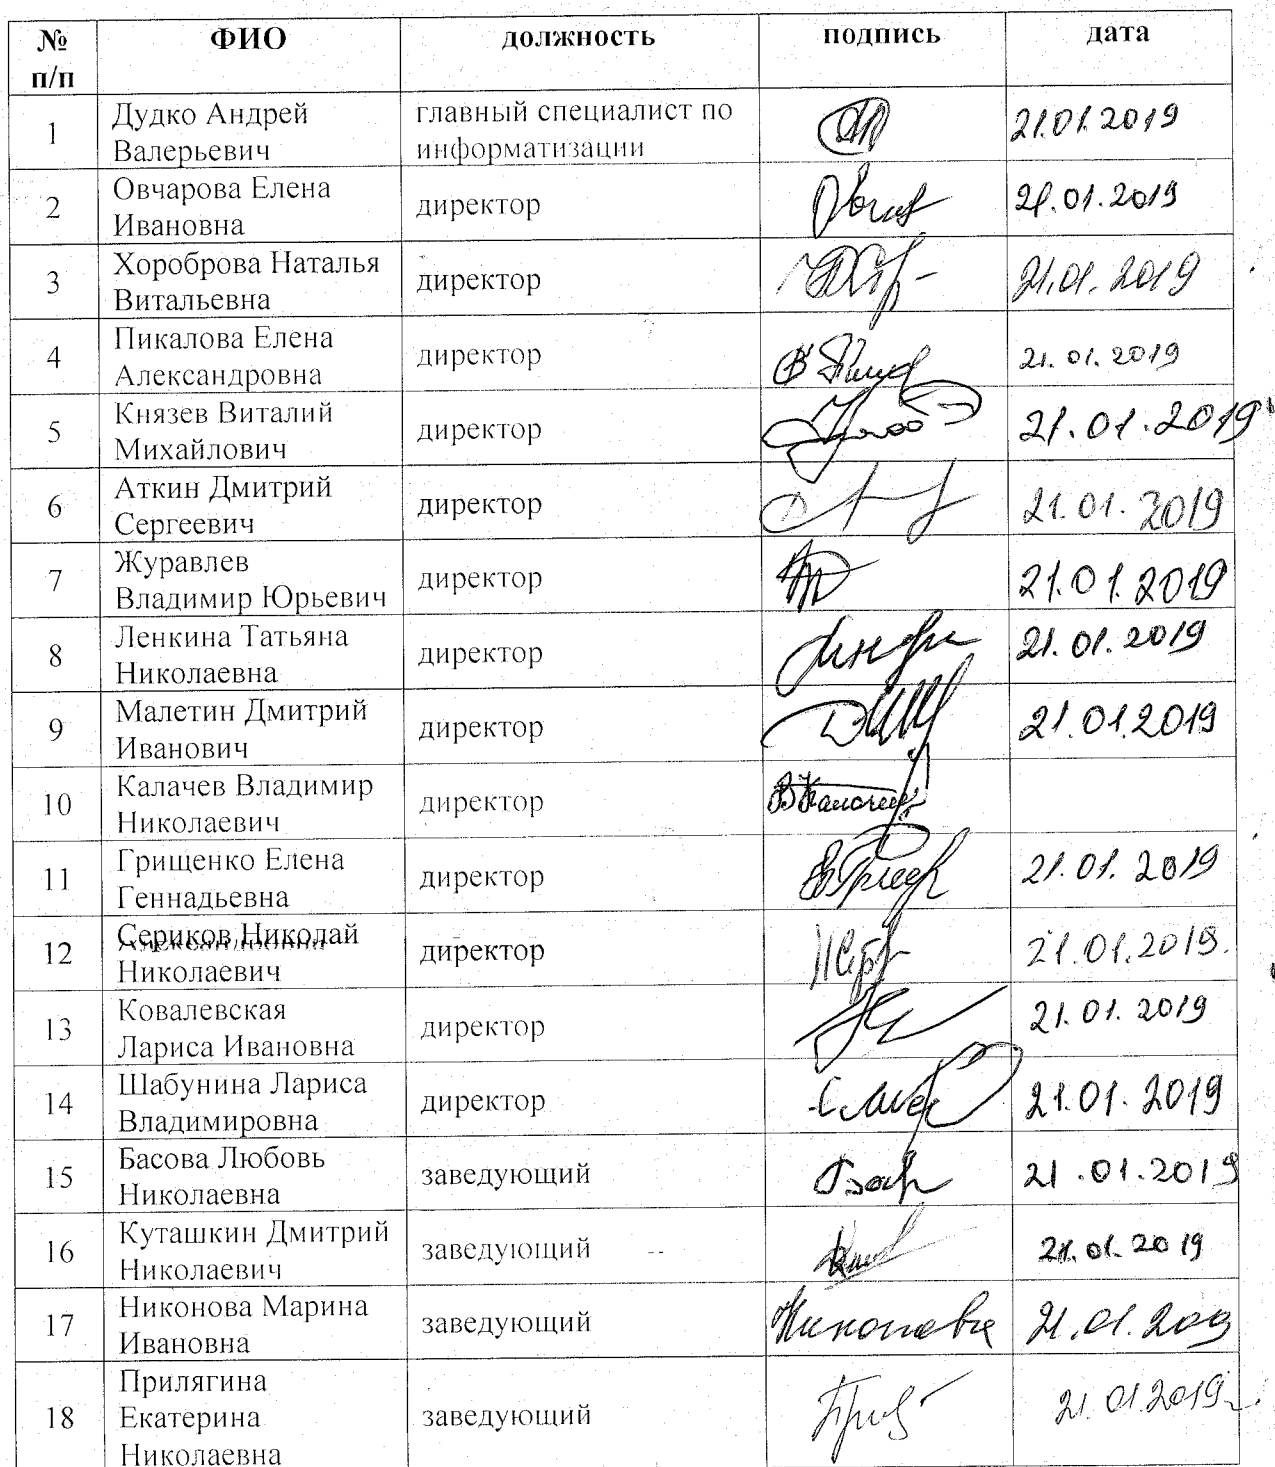 № п/п ФИО должность подпись дата
1 Дудко Андрей Валерьевич главный специалист по информатизации 21.01.2019
2 Овчарова Елена Ивановна директор 21.01.2019
3 Хороброва Наталья Витальевна директор 21.01.2019
4 Пикалова Елена Александровна директор 21.01.2019
5 Князев Виталий Михайлович директор 21.01.2019
6 Аткин Дмитрий Сергеевич директор 21.01.2019
7 Журавлев Владимир Юрьевич директор 21.01.2019
8 Ленкина Татьяна Николаевна директор 21.01.2019
9 Малетин Дмитрий Иванович директор 21.01.2019
10 Калачев Владимир Николаевич директор
11 Грищенко Елена Геннадьевна директор 21.01.2019
12 Сериков Николай Николаевич директор 21.01.2019.
13 Ковалевская Лариса Ивановна директор 21.01.2019
14 Шабунина Лариса Владимировна директор 21.01.2019
15 Басова Любовь Николаевна заведующий 21.01.2019
16 Куташкин Дмитрий Николаевич заведующий 21.01.2019
17 Никонова Марина Ивановна заведующий Никонова 21.01.2019
18 Прилягина Екатерина Николаевна заведующий 21.01.2019